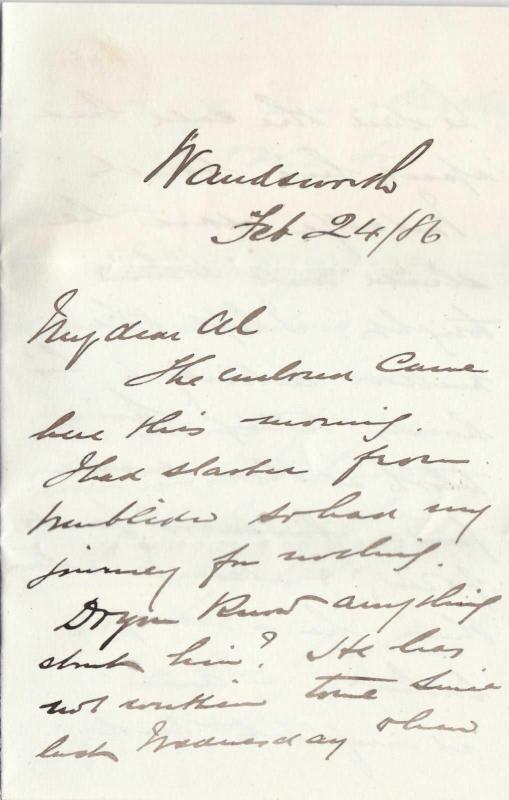 Wandsworth
Feb 24/86
My dear Al
The enclosed came
here this morning.
I had started from
so had my
journey for nothing.
Do you know anything
about him? He has
not written to me since
last Wednesday when